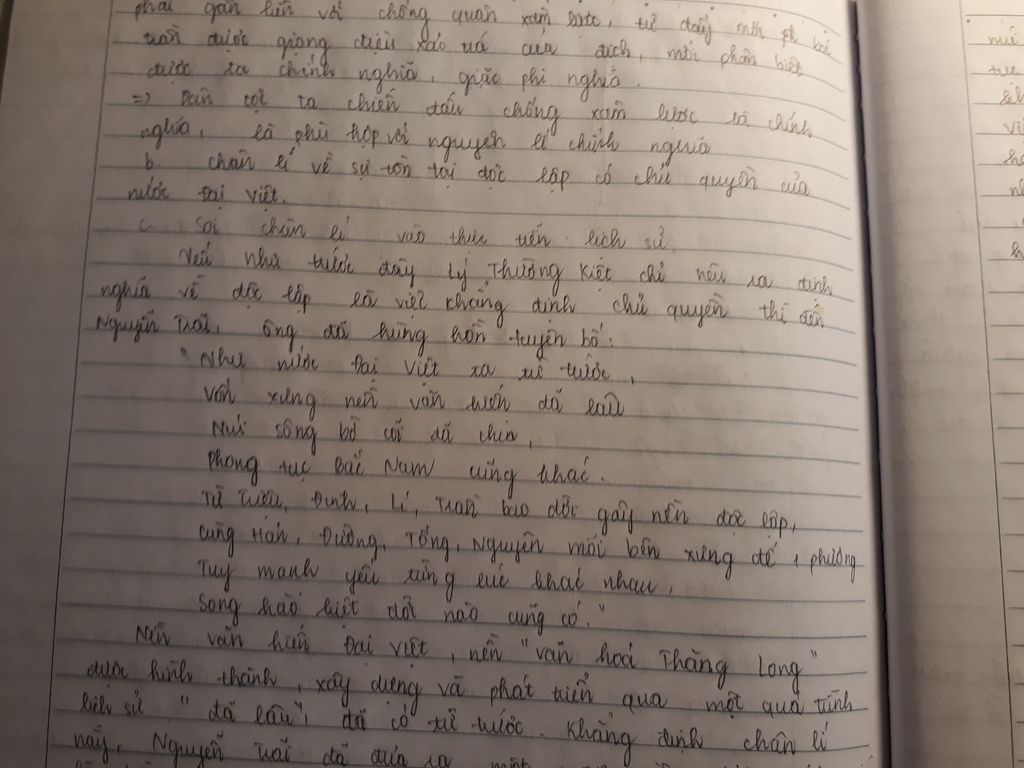 phải gắn liền với chống quân xâm lược, từ đấy mới
trần được giọng điệu xảo trá của địch, mới phân biệt
được ta chính nghĩa, giặc phi nghĩa.
=> Dân tộc ta chiến đấu chống xâm lược là chính
nghĩa, là phù hợp với nguyên lí chính nghĩa
b. chân lí về sự tồn tại độc lập có chủ quyền của
nước Đại Việt.
c. Soi chân lí vào thực tiễn lịch sử.
Nếu như trước đây Lý Thường Kiệt chỉ nêu ra định
nghĩa về độc lập là việc khẳng định chủ quyền thì đến
Nguyễn Trãi, ông đã hùng hồn tuyên bố:
"Như nước Đại Việt ta từ trước,
Vốn xưng nền văn hiến đã lâu
Núi sông bờ cõi đã chia,
Phong tục Bắc Nam cũng khác.
Từ Triệu, Đinh, Lí, Trần bao đời gây nền độc lập,
Cùng Hán, Đường, Tống, Nguyên mỗi bên xưng đế 1 phương
Tuy mạnh yếu từng lúc khác nhau,
Song hào kiệt đời nào cũng có."
Nền văn hiến Đại Việt, nền "văn hoá Thăng Long"
được hình thành, xây dựng và phát triển qua một quá trình
lịch sử "đã lâu", đã có từ trước. Khẳng định chân lí
này, Nguyễn Trãi đã đưa ra một